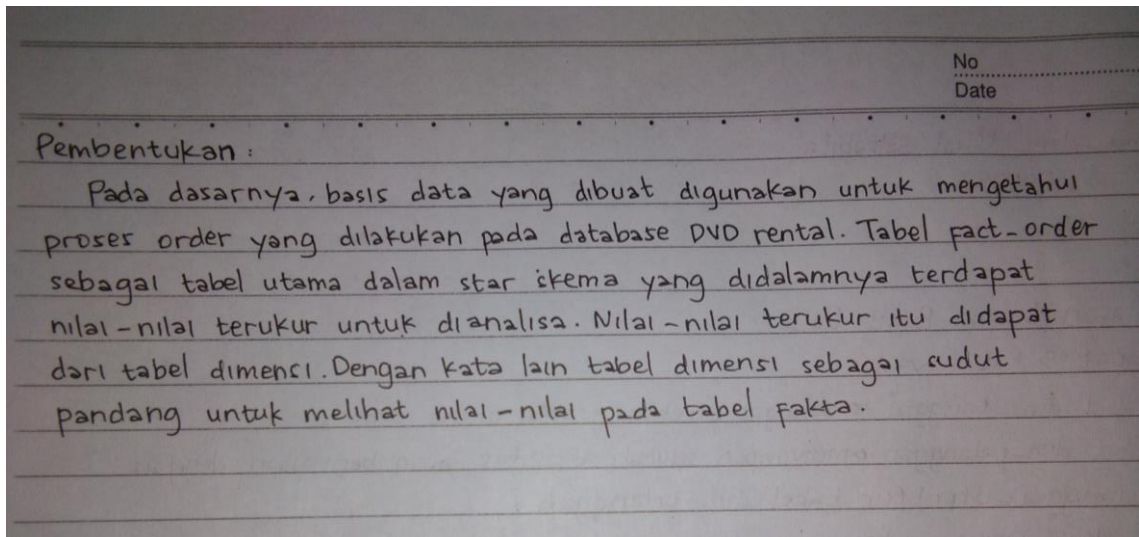 No
Date
Pembentukan :
Pada dasarnya, basis data yang dibuat digunakan untuk mengetahui
proses order yang dilakukan pada database DVD rental. Tabel fact-order
sebagai tabel utama dalam star skema yang didalamnya terdapat
nilai-nilai terukur untuk dianalisa. Nilai-nilai terukur itu didapat
dari tabel dimensi. Dengan kata lain tabel dimensi sebagai sudut
pandang untuk melihat nilai-nilai pada tabel fakta.